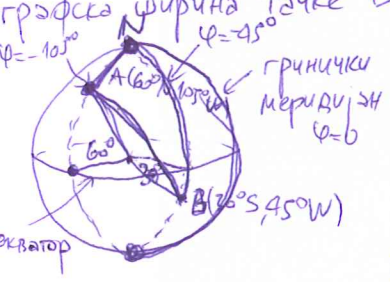 графска ширина тачке
N
φ=-105°
φ=-45°
A(60°N, 105°W)
гринички
меридијан
φ=0
60°
30°
B(30°S, 45°W)
екватор